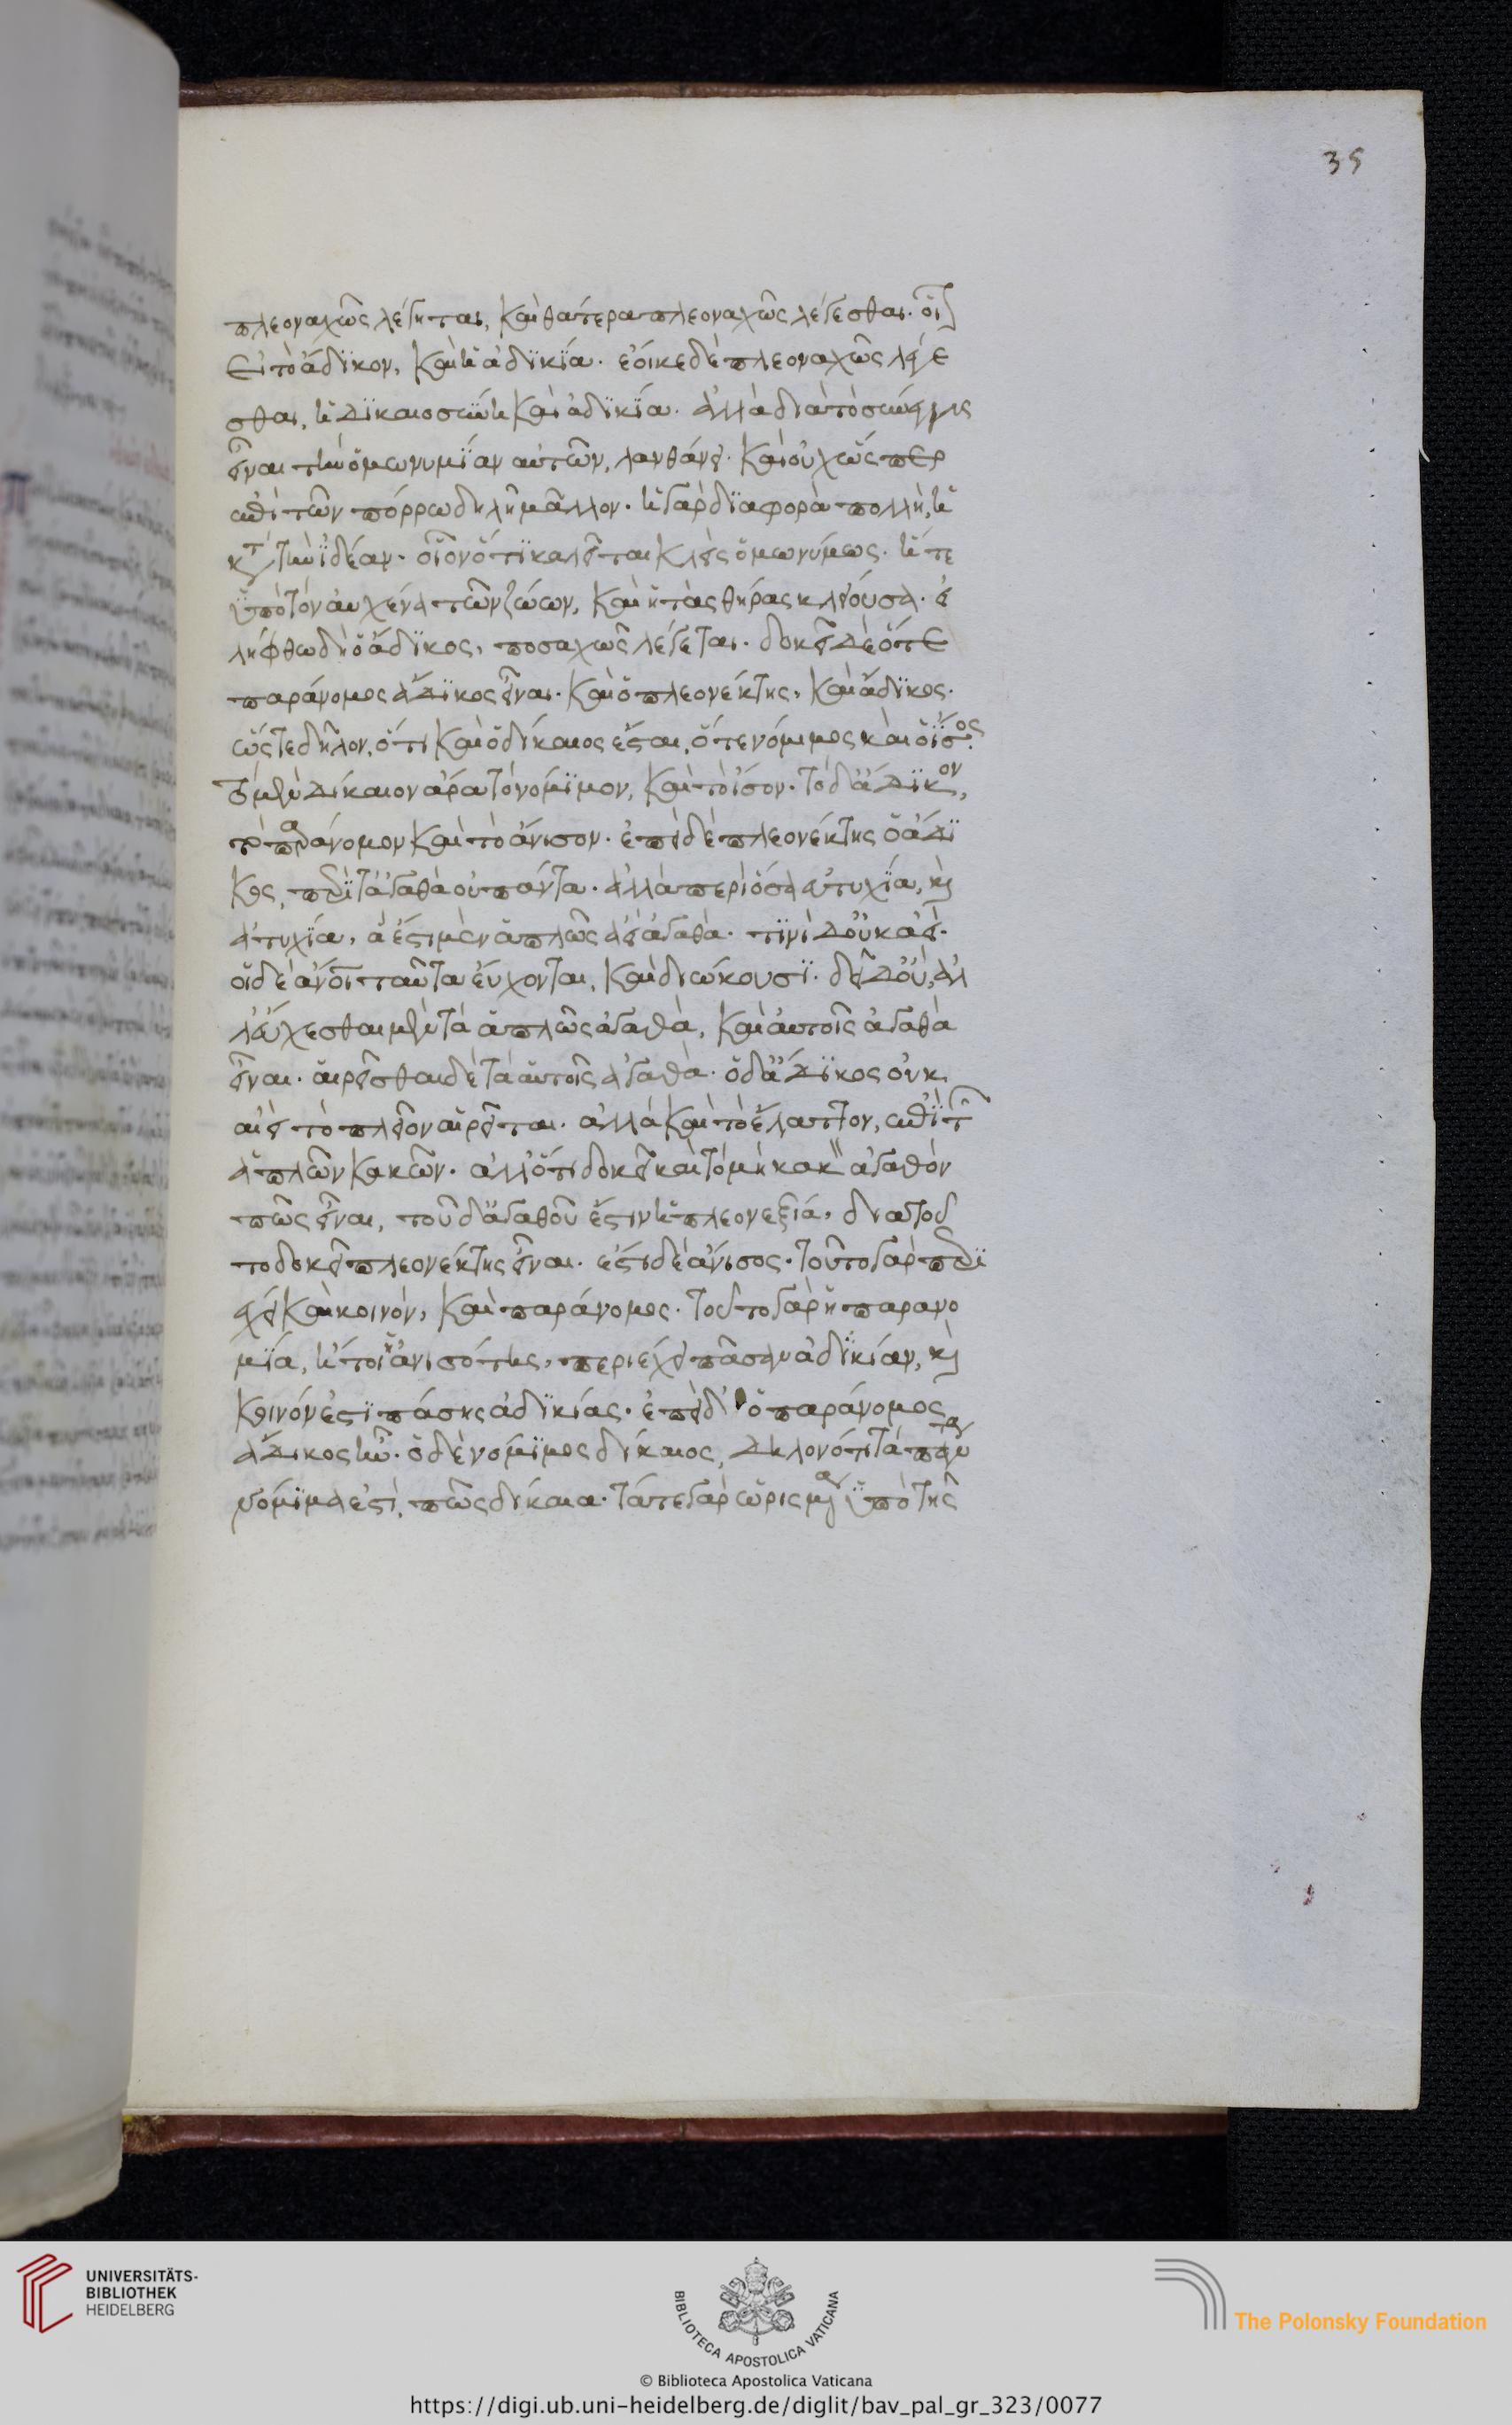 35
πλεοναχῶς λέγηται, καὶ θάτερα πλεοναχῶς λέγεσθαι. οἷον
εἰ τὸ ἄδϊκον, καὶ ἡ ἀδϊκΐα. ἔοικε δὲ πλεοναχῶς λέγε
σθαι, ἡ δϊκαιοσύνη καὶ ἀδϊκΐα. ἀλλὰ διὰ τὸ σύνεγγις
εἶναι τὴν ὁμωνυμΐαν αὐτῶν, λανθάνει. καὶ οὐχ ὥσπερ
ἐπὶ τῶν πόρρω δηλη μᾶλλον. ἡ γὰρ δϊαφορὰ πολλὴ, ἡ
κατὰ τὴν ἰδέαν. οἷον ὅτϊ καλεῖται κλεὶς ὁμωνύμως. ἥ τε
ὑπὸ τὸν αὐχένα τῶν ζώων, καὶ ἡ τὰς θήρας κλείουσα. εἰ
λήφθω δὴ ὁ ἄδϊκος, ποσαχῶς λέγεται. δοκεῖ δὲ ὅ τε
παράνομος ἄδϊκος εἶναι. καὶ ὁ πλεονέκτης, καὶ ἄδϊκος.
ὥστε δῆλον, ὅτι καὶ ὁ δίκαιος ἔσται, ὅ τε νόμιμος καὶ ὁ ἴσος.
τὸ μὲν δίκαιον ἄρα τὸ νομΐμον, καὶ τὸ ἴσον. τὸ δ' ἄδϊκον,
τὸ παράνομον καὶ τὸ ἄνισον. ἐπεὶ δὲ πλεονέκτης ὁ ἄδϊ
κος, περὶ τἀγαθὰ οὐ πάντα. ἀλλὰ περὶ ὅσα εὐτυχΐα, καὶ
ἀτυχΐα, ἃ ἔστι μὲν ἁπλῶς ἀεὶ ἀγαθὰ. τϊνὶ δ' οὐκ ἀεὶ.
οἱ δὲ ἄνθρωποι ταῦτα εὔχονται, καὶ διώκουσϊ. δεῖ δ' οὔ, ἀλ
λ' εὔχεσθαι μὲν τὰ ἁπλῶς ἀγαθὰ, καὶ αὐτοῖς ἀγαθὰ
εἶναι. αἱρεῖσθαι δὲ τὰ αὑτοῖς ἀγαθὰ. ὁ δ' ἄδϊκος οὐκ
αἰεὶ τὸ πλεῖον αἱρεῖται. ἀλλὰ καὶ τὸ ἔλαττον, ἐπὶ τῶν
ἁπλῶν κακῶν. ἀλλ' ὅτι δοκεῖ καὶ τὸ μὴ κακὸν ἀγαθόν
πως εἶναι, τοῦ δ' ἀγαθοῦ ἔστιν ἡ πλεονεξΐα, διὰ τοῦ
το δοκεῖ πλεονέκτης εἶναι. ἔστι δὲ ἄνισος. τοῦτο γὰρ περι
έχει καὶ κοινόν, καὶ παράνομος. τοῦτο γὰρ ἡ παρανο
μΐα, ἤτοι ἡ ἀνισότης, περιέχει πᾶσαν ἀδϊκίαν, καὶ
κοινόν ἐστϊ πάσης ἀδϊκίας. ἐπεὶ δ' ὁ παράνομος
ἄδικος ἦν. ὁ δὲ νομϊμος δίκαιος, δηλονότι πάντα τὰ
νόμϊμα ἐστὶ, πως δίκαια. τά τε γὰρ ὡρισμένα ὑπὸ τῆς
UNIVERSITÄTS-
BIBLIOTHEK
HEIDELBERG
BIBLIOTECA APOSTOLICA VATICANA
The Polonsky Foundation
© Biblioteca Apostolica Vaticana
https://digi.ub.uni-heidelberg.de/diglit/bav_pal_gr_323/0077